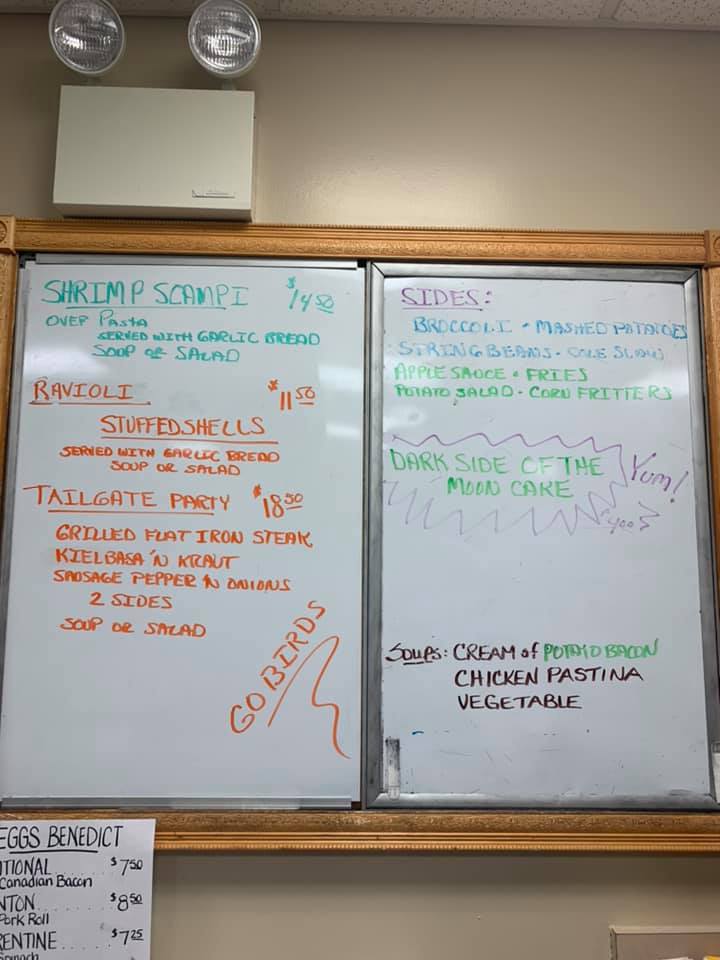 SHRIMP SCAMPI $14.50
OVER Pasta
SERVED WITH GARLIC BREAD
SOUP OR SALAD
RAVIOLI $11.50
STUFFED SHELLS
SERVED WITH GARLIC BREAD
SOUP OR SALAD
TAILGATE PARTY $18.50
GRILLED FLAT IRON STEAK
KIELBASA 'N KRAUT
SAUSAGE PEPPER 'N ONIONS
2 SIDES
SOUP OR SALAD
GO BIRDS
SIDES:
BROCCOLI - MASHED POTATOES
STRING BEANS - COLE SLAW
APPLE SAUCE - FRIES
POTATO SALAD - CORN FRITTERS
DARK SIDE OF THE
MOON CAKE
Yum!
$4.00
SOUPS: CREAM of POTATO BACON
CHICKEN PASTINA
VEGETABLE
EGGS BENEDICT
ITIONAL $7.50
Canadian Bacon
NTON $8.50
Pork Roll
RENTINE $7.25
Spinach